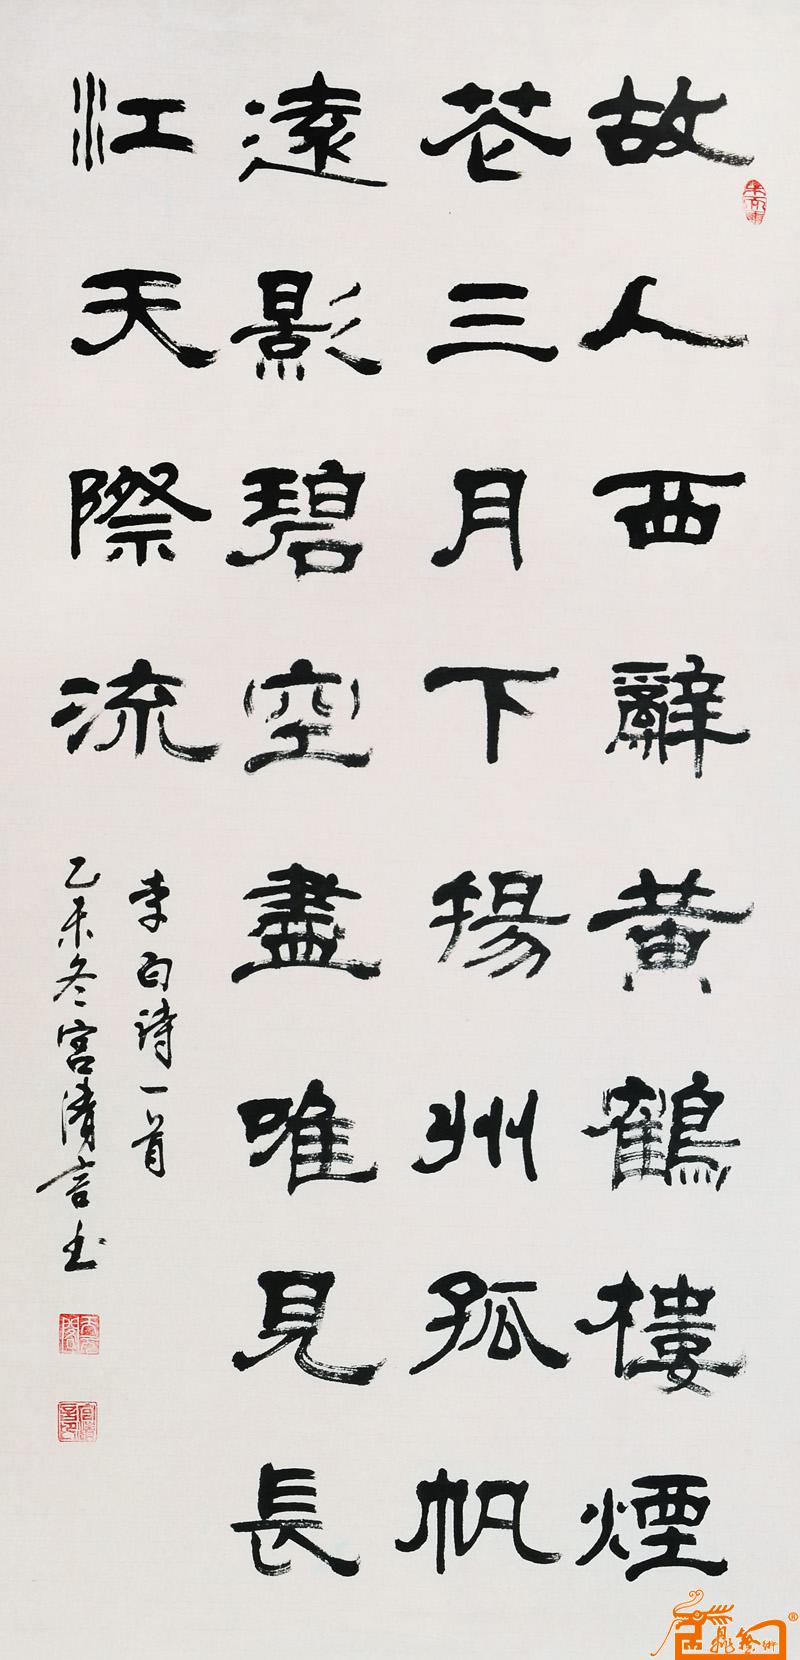 故人西辭黄鶴樓煙
花三月下揚州孤帆
遠影碧空盡唯見長
江天際流
李白詩一首
乙未冬宮清言书
鼎藝術